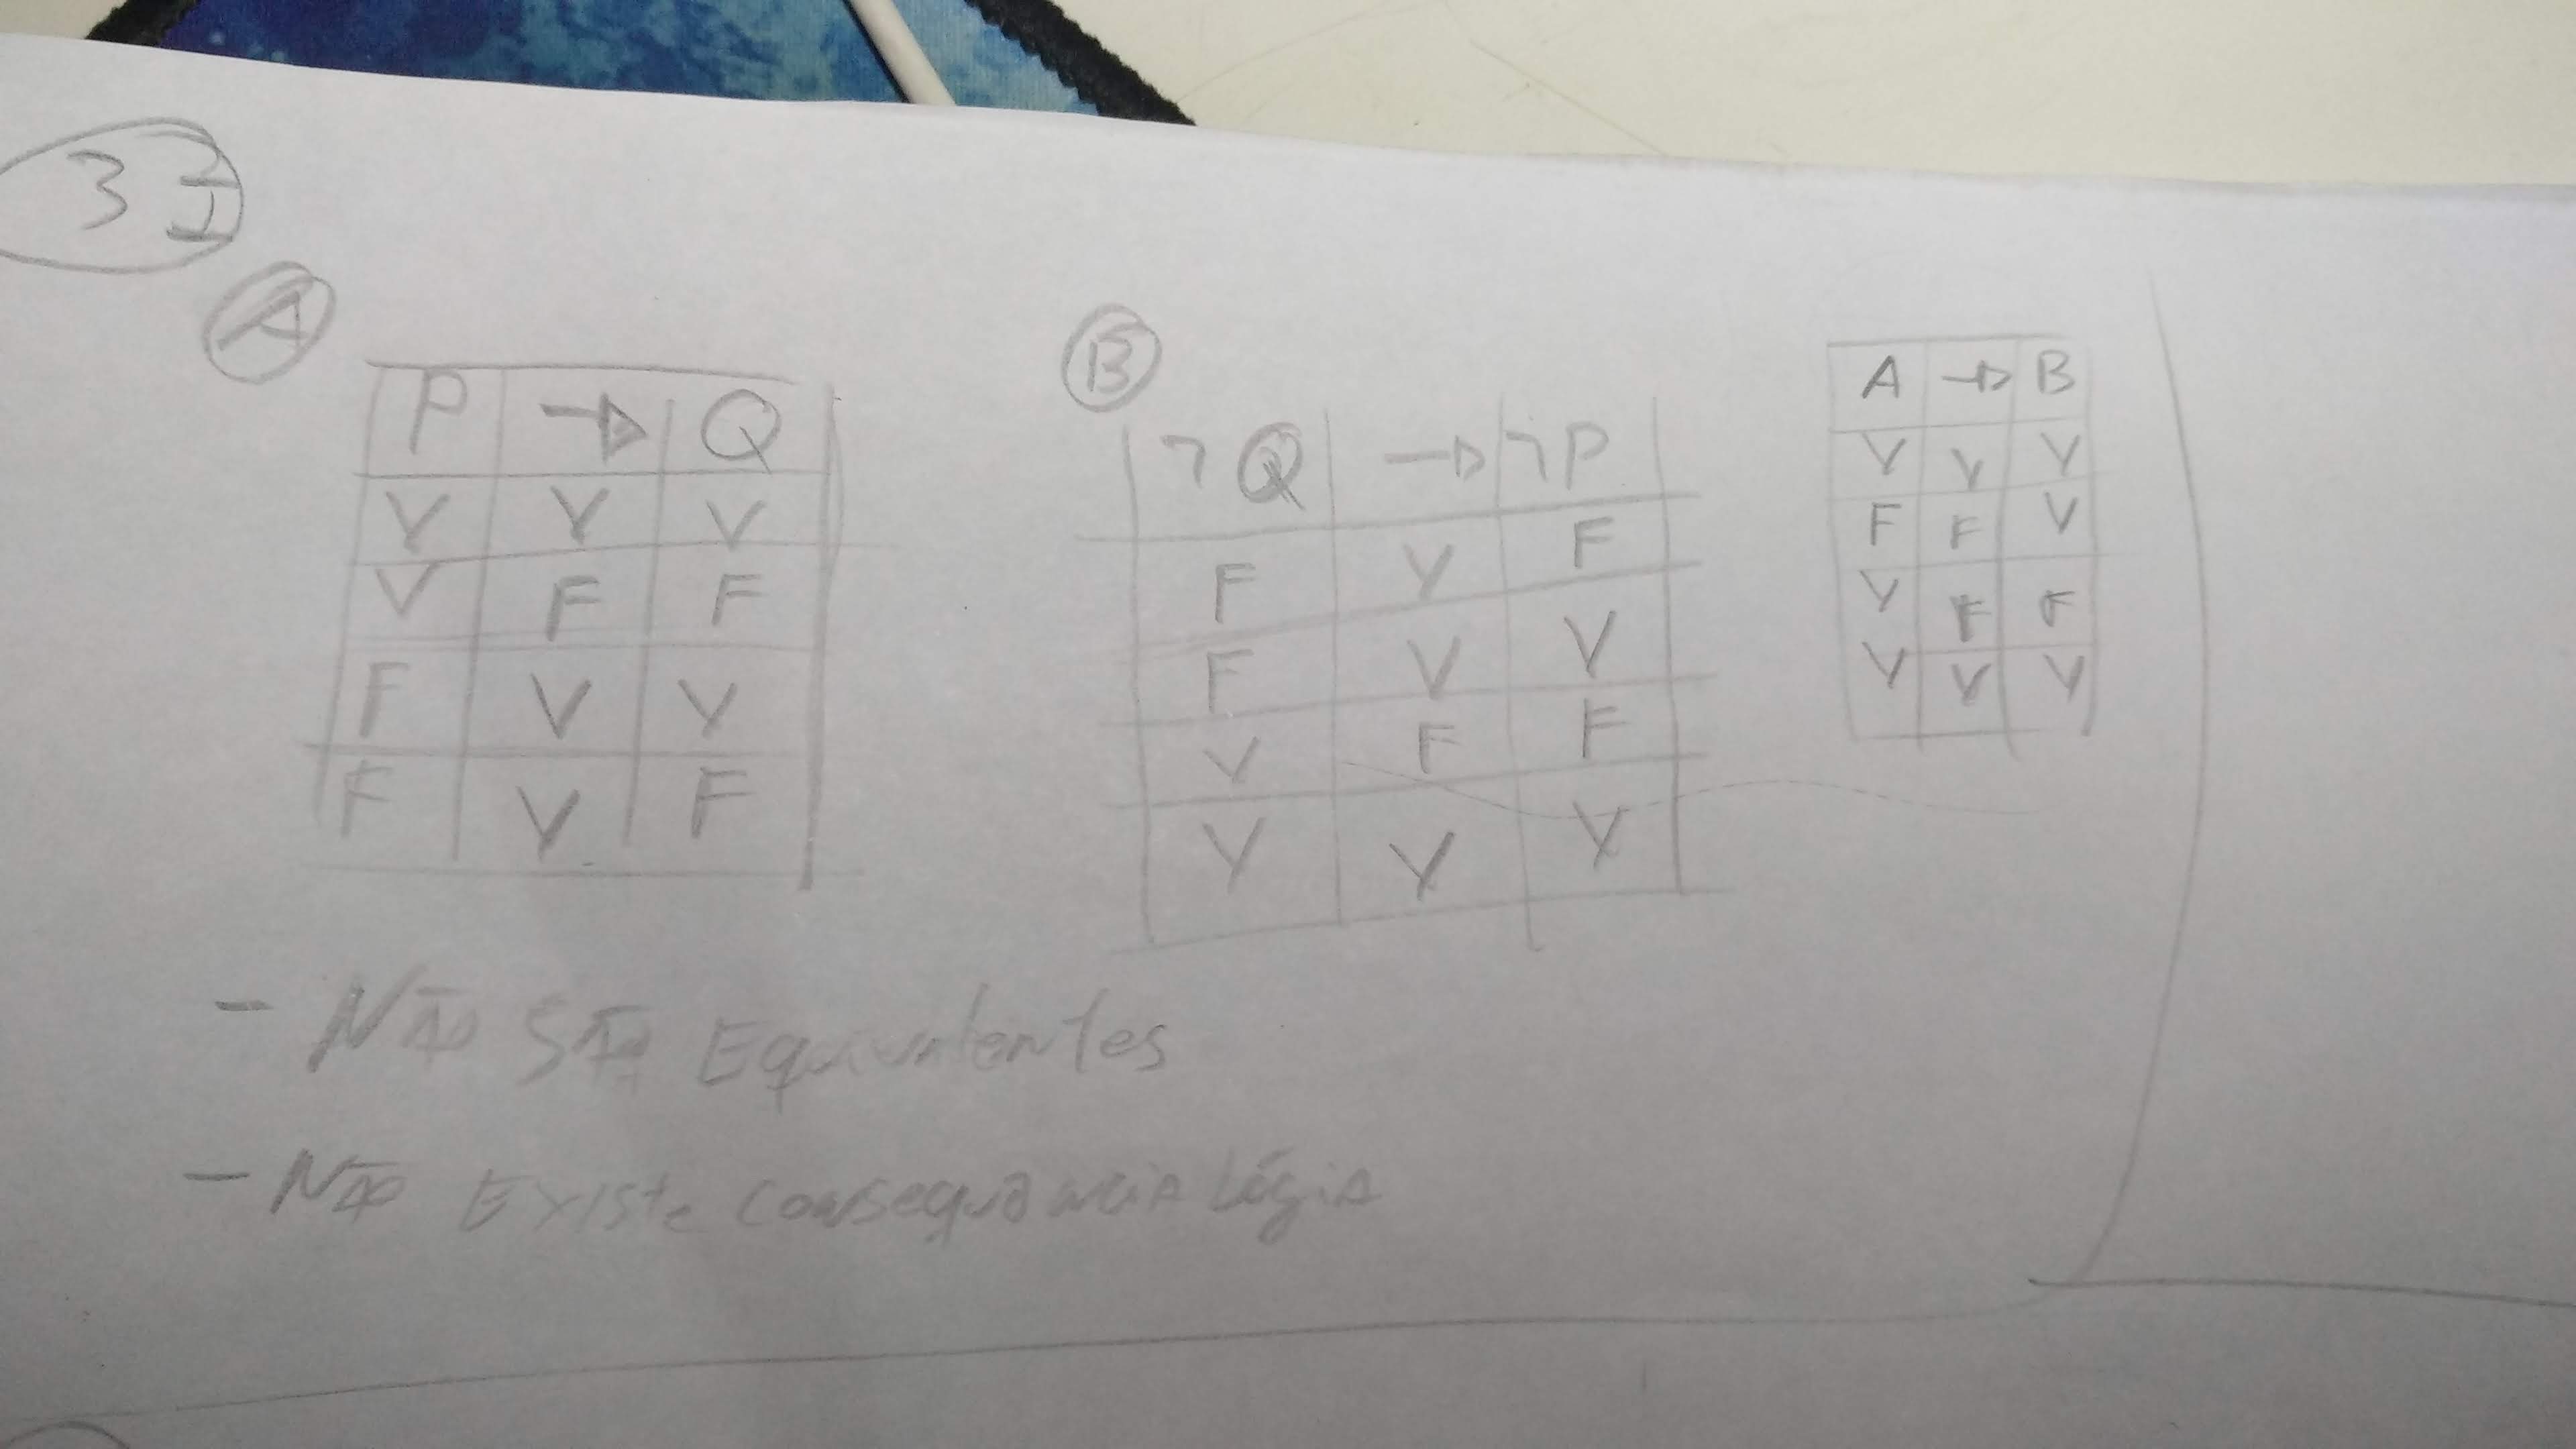 3 I
A
P → Q
V V V
V F F
F V V
F V F
B
¬Q → ¬P
F V F
F V V
V F F
V V V
A → B
V V V
F F V
V F F
V V V
- Não São Equivalentes
- Não Existe consequência Lógia